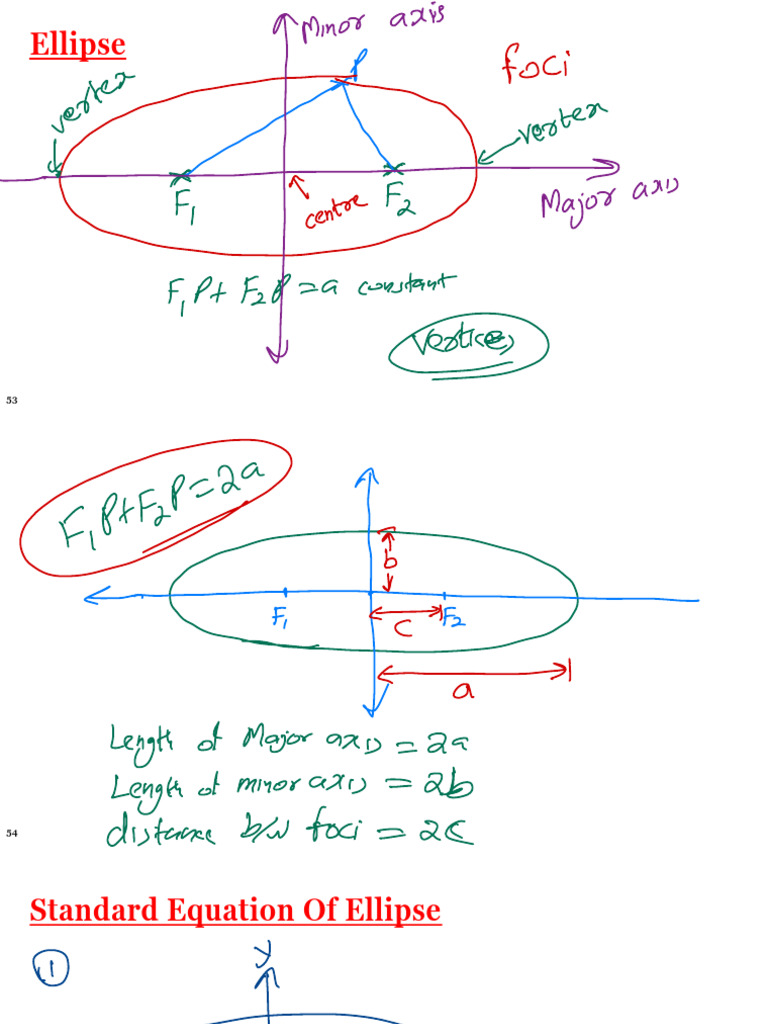 Minor axis
Ellipse
P
foci
vertex
vertex
F1
centre
F2
Major axis
F1P + F2P = a constant
Vertices
53
F1P + F2P = 2a
b
F1
F2
C
a
Length of Major axis = 2a
Length of minor axis = 2b
distance b/w foci = 2C
54
Standard Equation Of Ellipse
1
y